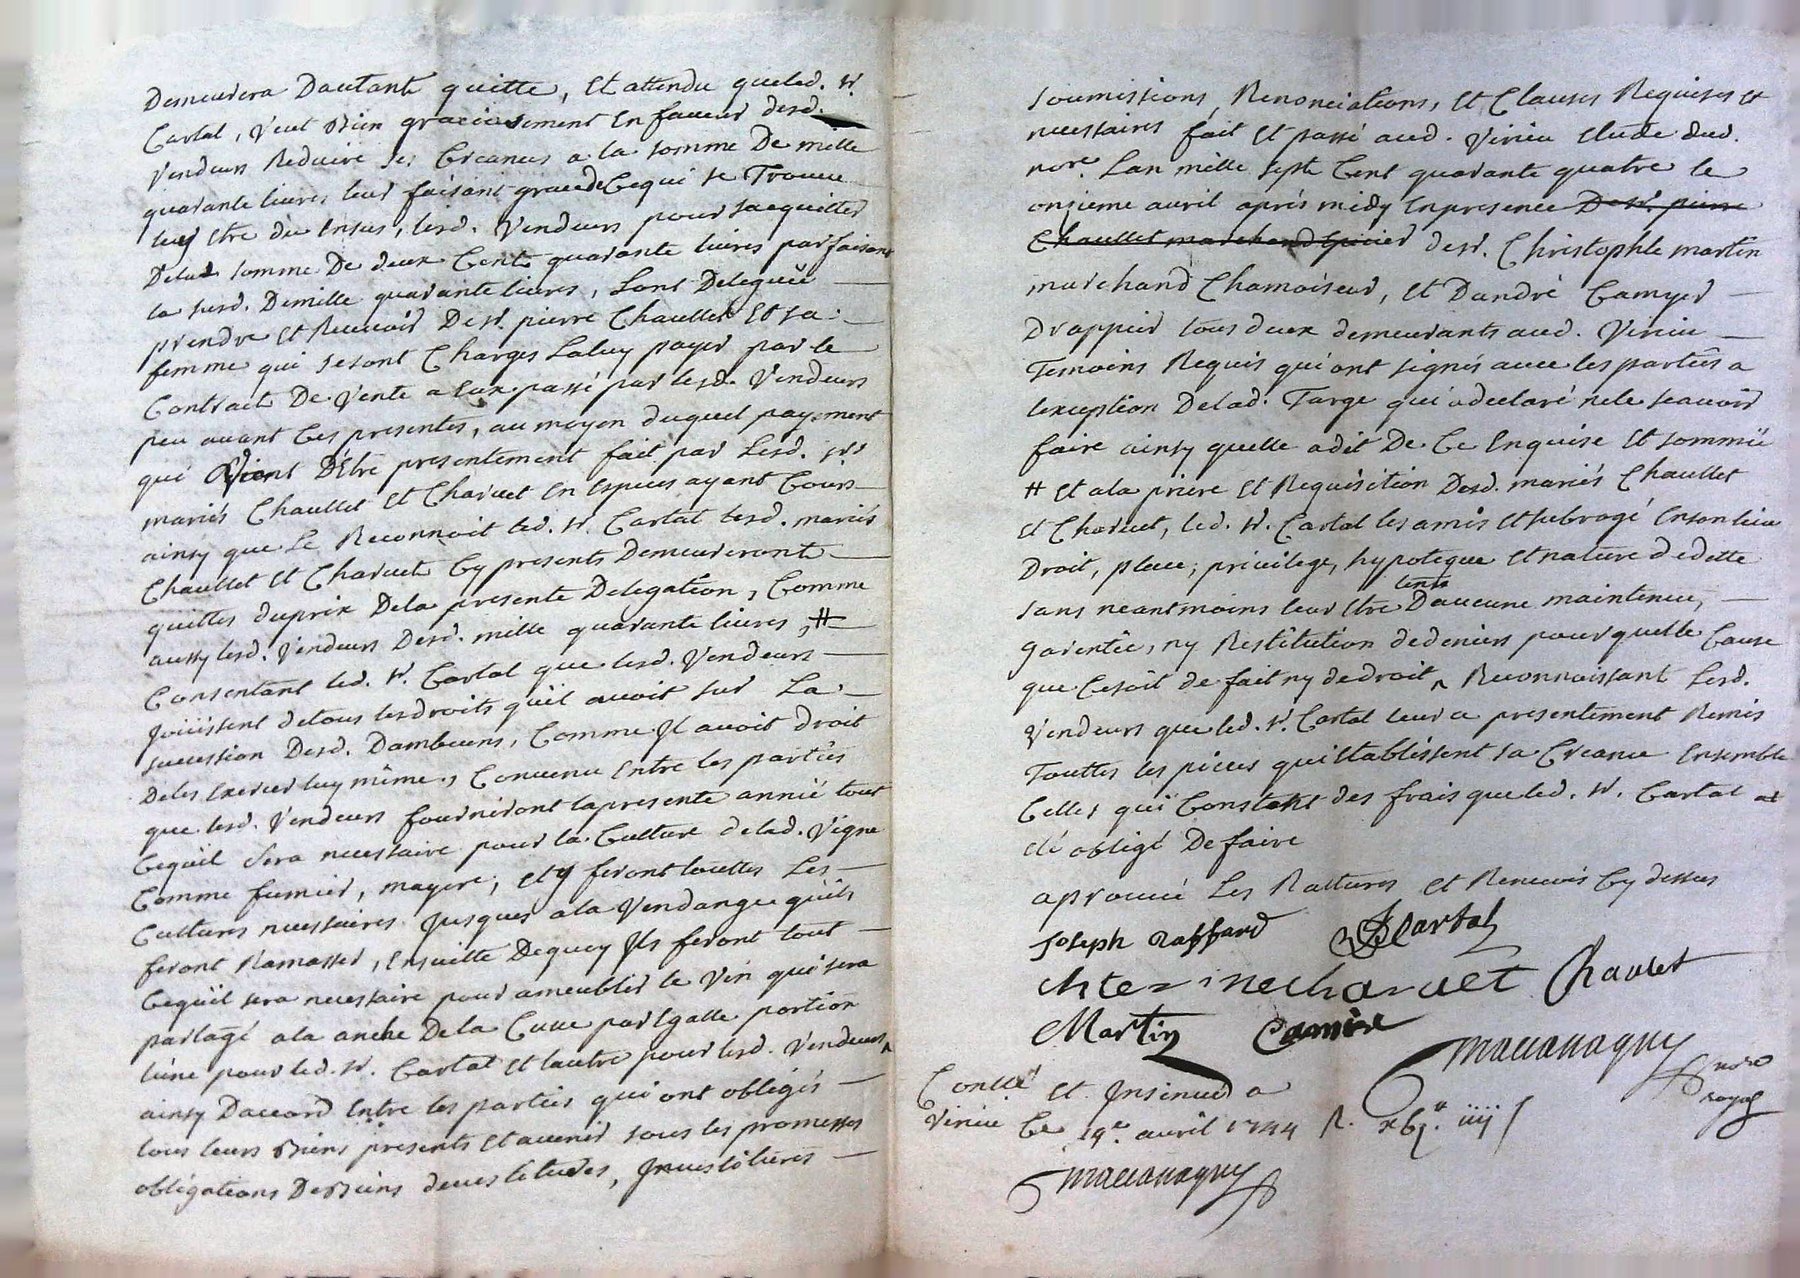 Demeurera Dautant quitte, Et attendu queled. Sr.
Cartal, veut Bien gracieusement En faveur desd.
Vendeurs Reduire ses Creances a la somme De mille
quarante livres leur faisant grace de Cequi se Trouve
luy Etre du Ensus, lesd. Vendeurs pour sacquitter
Delad somme De deux Cent quarante livres parfaisant
la susd. Demille quarante livres, sont Delegué
prendre et Recevoir De sr. pierre Chaullet Et sa
femme qui se sont Charges Laluy payer par le
Contract De Vente a Eux passé par lesd. Vendeurs
peu avant Ces presentes, au moyen duquel payement
qui Vient D'Etre presentement fait par Lesd. srs
mariés Chaullet et Charvet En Especes ayant Cours
ainsy que Le Reconnoit led. Sr. Cartal lesd. mariés
Chaullet et Charvet Cy presents Demeureront
quittes duprix Dela presente Delegation, Comme
aussy lesd. Vendeurs Desd. mille quarante livres, #
Consentant led. Sr. Cartal que lesd. Vendeurs
joüissent detous les droits qu'il avoit sur La
succession Desd. Dambuens, Comme Il avoit droit
Deles Exercer luy même, Convenu Entre les parties
que lesd. Vendeurs fourniront lapresente année tout
Cequil sera necessaire pour la Culture delad. Vigne
Comme fumier, mayere, et y feront touttes Les
Cultures necessaires Jusques ala Vendange quils
feront Ramasser, Ensuitte Dequoy Ils feront tout
Cequil sera necessaire pour ameublir le Vin qui sera
partagé ala anche De la Cuve par Egalle portion
lune pour led. Sr. Cartal et lautre pour lesd. Vendeurs
ainsy Daccord Entre les parties qui ont obligés
tous leurs Biens presents et avenir sous les promesses
obligations De Biens devestitudes, Investitures
soumissions, Renonciations, et Clauses Requises et
necessaires fait et passé aud. Virieu Etude dud.
nore. Lan mille sept Cent quarante quatre le
onsieme avril aprés midy En presence De sr. pierre
Chaullet marchand Epicier de sr. Christophle martin
marchand Chamoiseur, et Dandré Camyer
Drappier tous deux demeurants aud. Virieu
Temoins Requis qui ont signés avec les parties a
lexception Delad. Targe qui a declaré ne le scavoir
faire ainsy quelle adit De Ce Enquise et sommée
# et ala priere et Requisition Desd. mariés Chaullet
et Charvet, led. Sr. Cartal les amis et subrogé Enson lieu
Droit, place, privilege, hypoteque et nature de dette
sans neantmoins leur Etre tenu Daucune maintenue,
garentie, ny Restitution dedeniers pour quelle Cause
que Cesoit de fait ny de droit, Reconnoissant Lesd.
Vendeurs que led. Sr. Cartal leur a presentement Remis
Touttes les pieces qui Etablissent sa Creance Ensemble
Celles qui Constatent des frais que led. Sr. Cartal a
été obligé De faire
aprouvé Les Ratures et Renvois Cy dessus
Joseph Raffard Cartal
charvet Chaulet
Martin Camier
maccanaguy nore royal
Conllé et Insinué a
Virieu Ce 19e. avril 1744 R.
maccanaguy